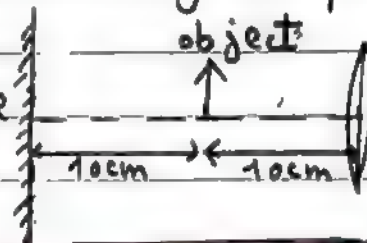 object
e
10cm 10cm